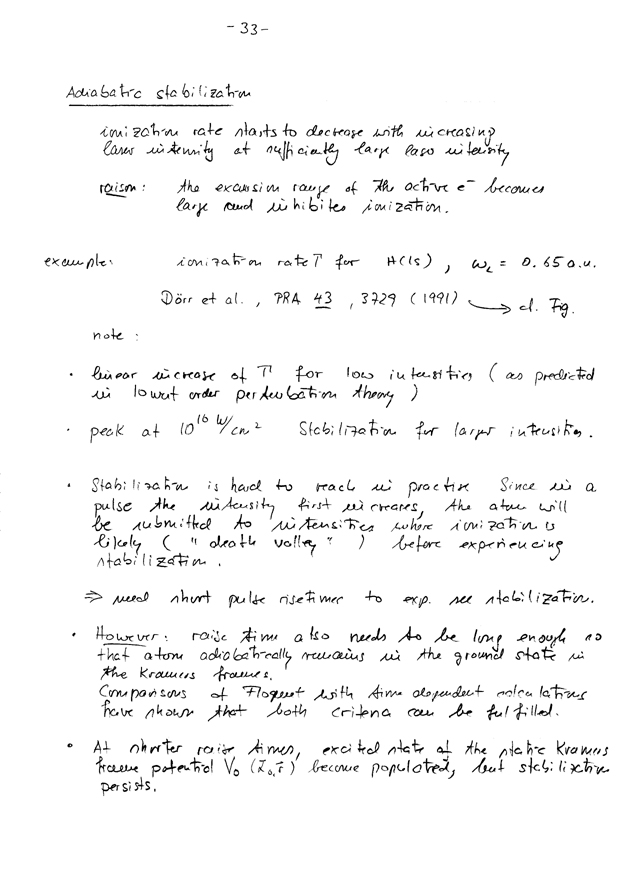 -33-
Adiabatic stabilization
ionization rate starts to decrease with increasing
laser intensity at sufficiently large laser intensity
raison: the excursion range of the active e⁻ becomes
large and inhibites ionization.
example: ionization rate Γ for H(1s), ω_L = 0.65 a.u.
Dörr et al., PRA 43, 3729 (1991) → cf. Fig.
note:
· linear increase of Γ for low intensities (as predicted
in lowest order perturbation theory)
· peak at 10¹⁶ W/cm² Stabilization for larger intensities.
· Stabilization is hard to reach in practise Since in a
pulse the intensity first increases, the atom will
be submitted to intensities where ionization is
likely ("death valley") before experiencing
stabilization.
⇒ need short pulse risetimes to exp. see stabilization.
· However: raise time also needs to be long enough so
that atom adiabatically remains in the ground state in
the Kramers frames.
Comparisons of Floquet with time dependent calculations
have shown that both criteria can be fulfilled.
· At shorter raise times, excited state of the static Kramers
frame potential V₀ become populated, but stabilization
persists.